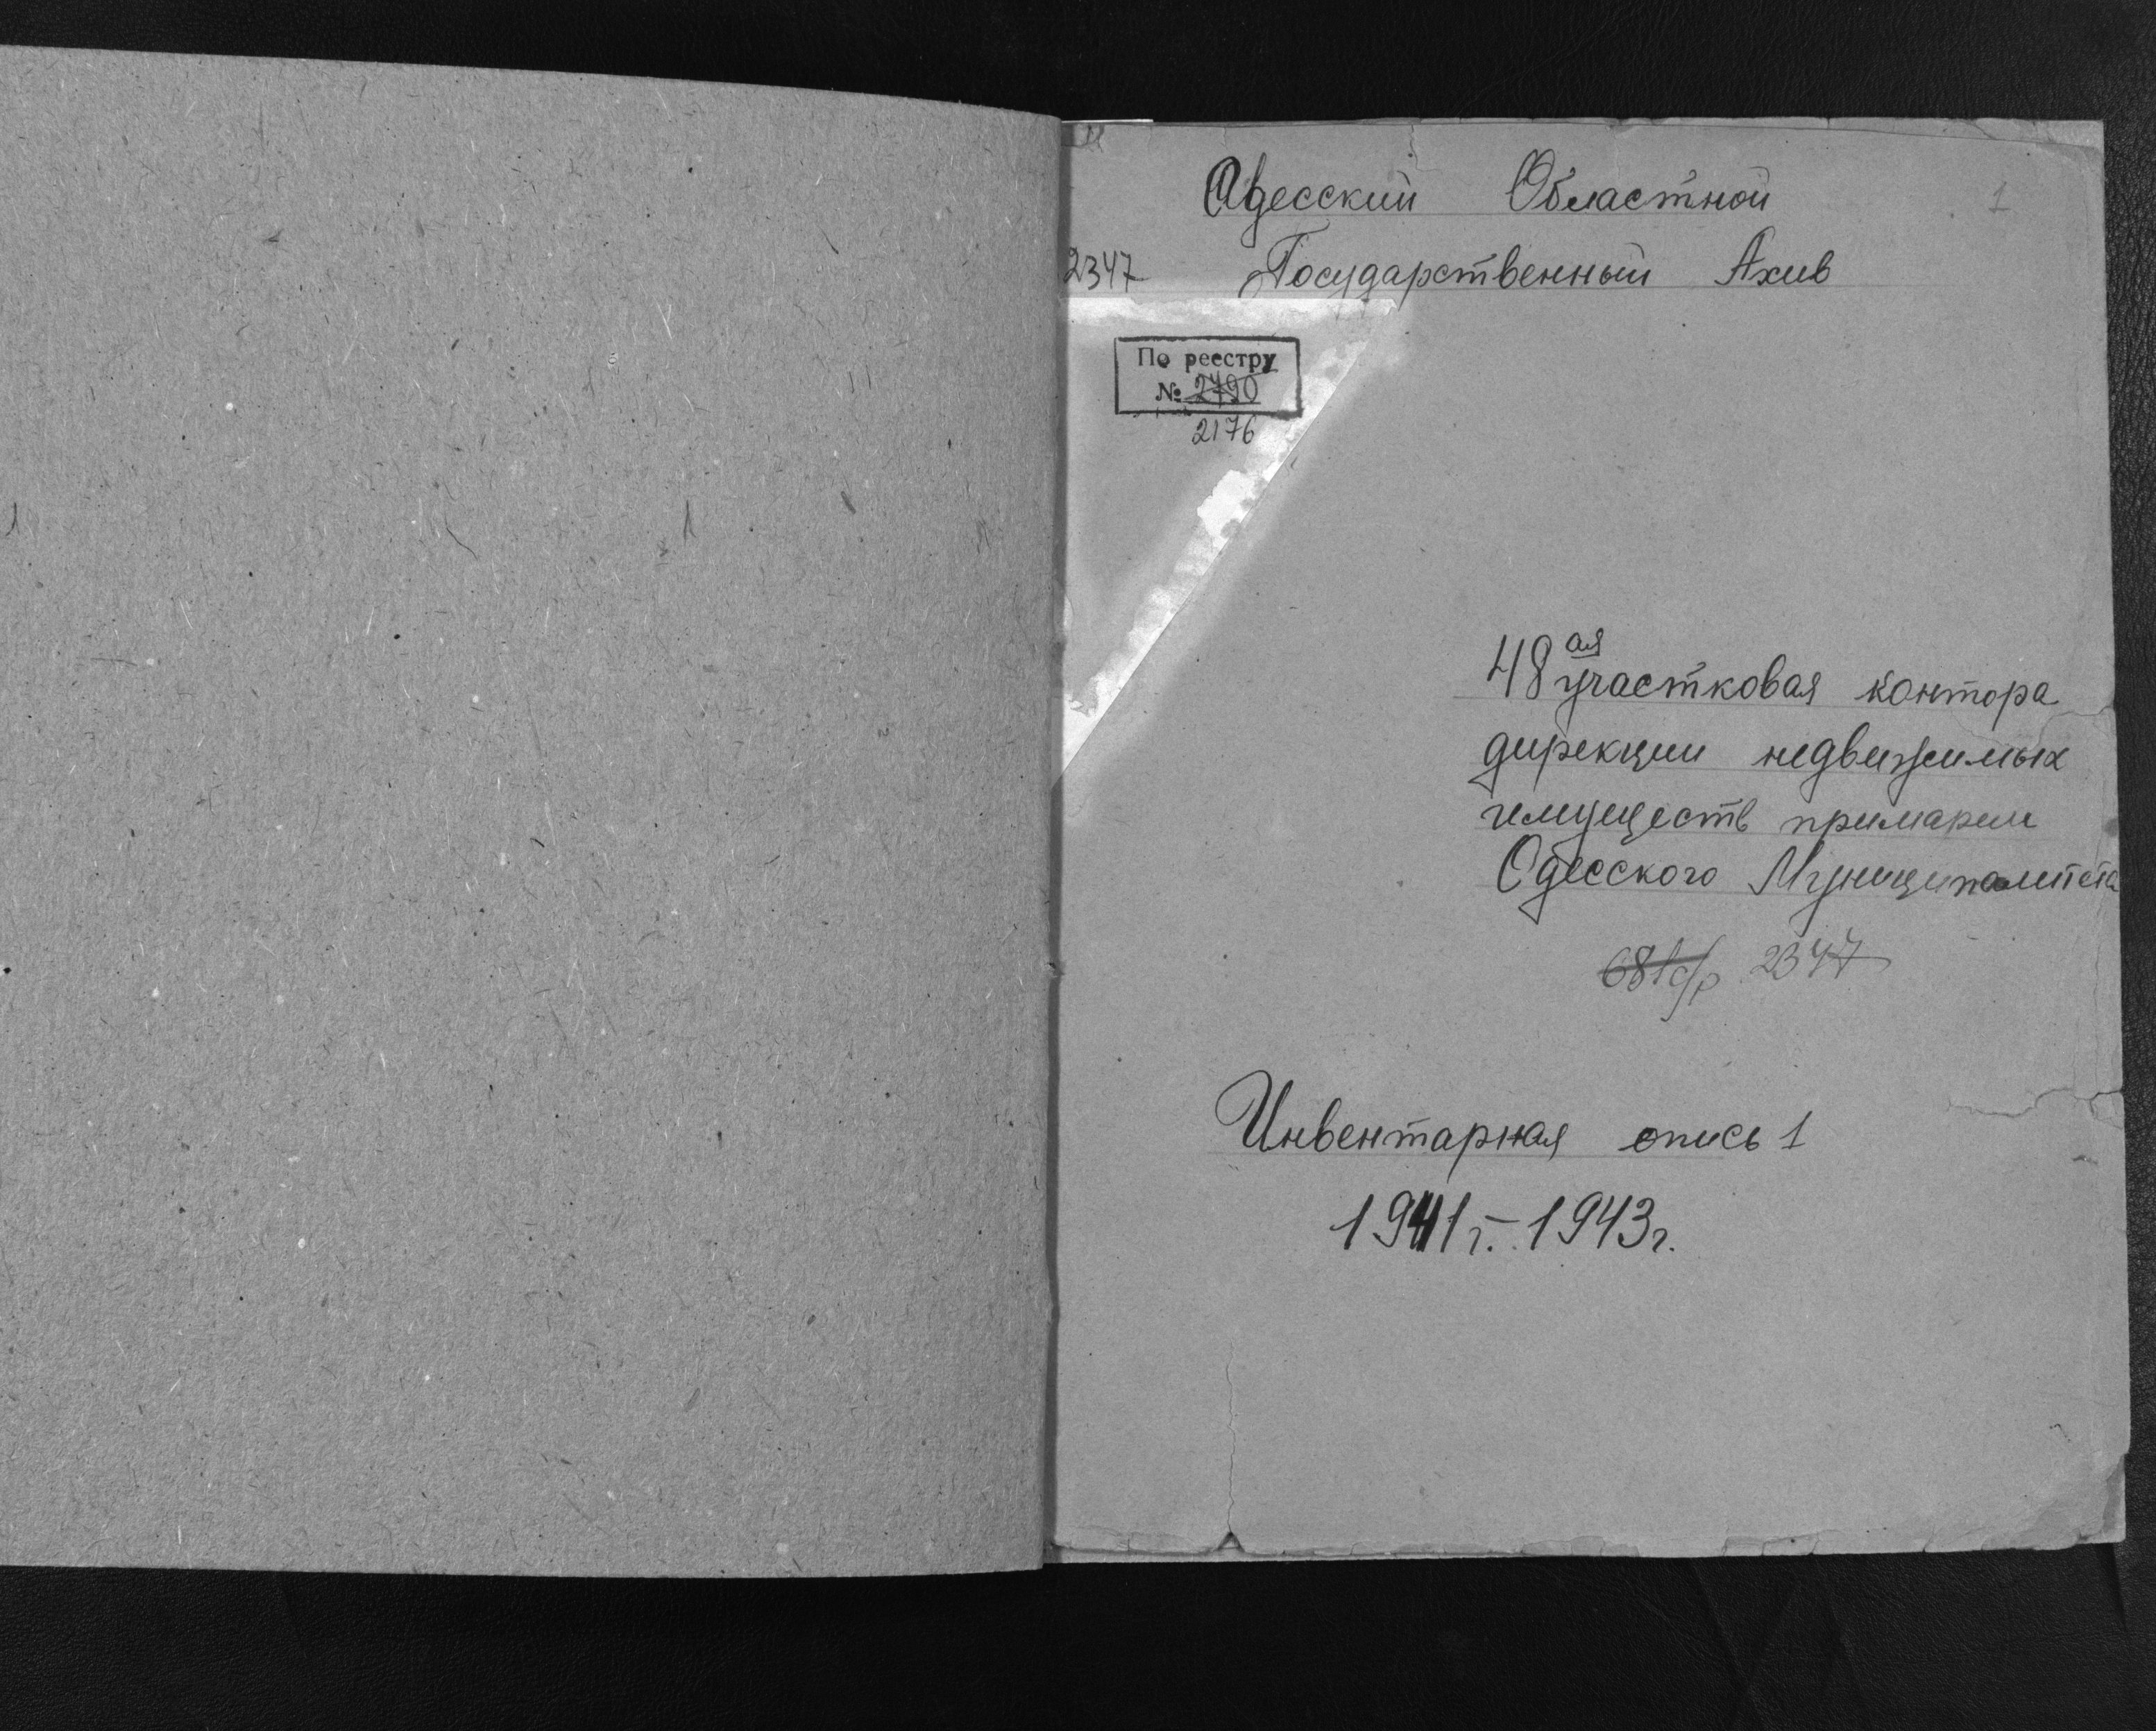 Одесский Областной
1
2347 Государственный Ахив
По реестру
№ 2790
2176
48ая участковая контора
дирекции недвижимых
имуществ примарии
Одесского Муниципалитета
681 ф/р 2347
Инвентарная опись 1
1941г. - 1943г.